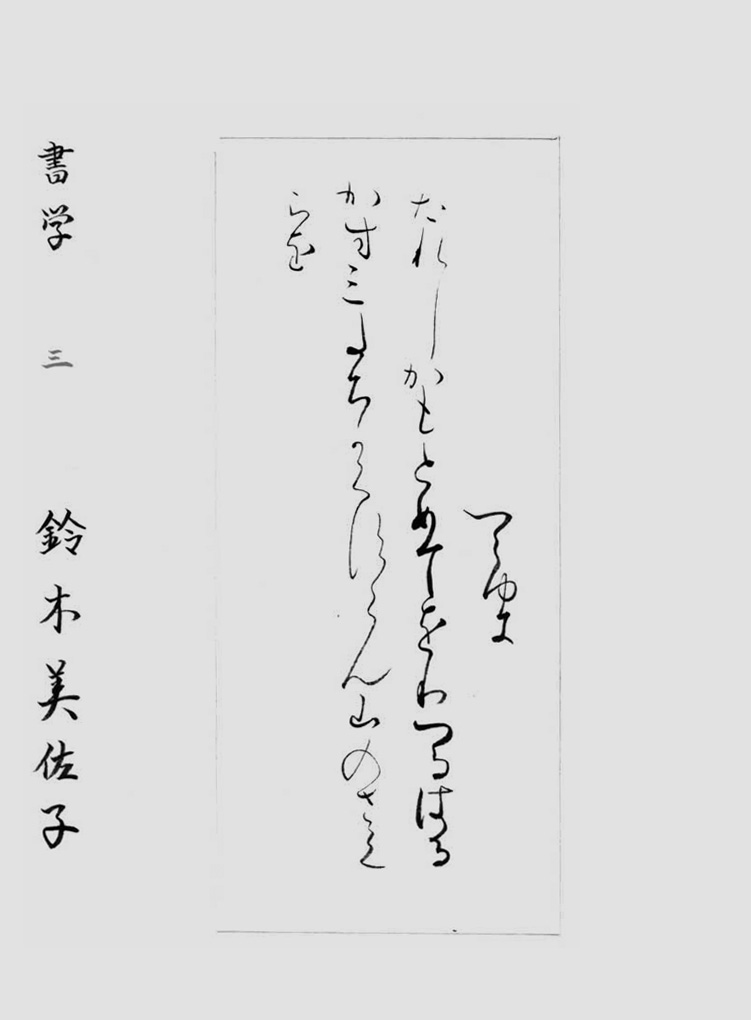 つらゆき
たれしかもとめてをりつるはる
かすみたちかくすらん山のさく
らを
書学 三 鈴木美佐子